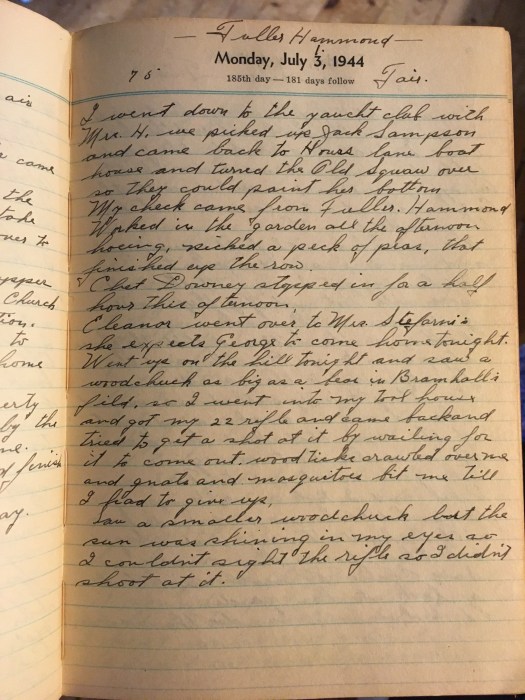 — Fuller Hammond —
Monday, July 3, 1944
75
185th day — 181 days follow
Fair.
I went down to the yaucht club with
Mrs. H. we picked up Jack Sampson
and came back to Hours lane boat
house and turned the Old Squaw over
so they could paint her bottom
My check came from Fuller. Hammond
Worked in the garden all the afternoon
hoeing, picked a peck of peas, that
finished up the row.
Chet Downey stopped in for a half
hour this afternoon,
Eleanor went over to Mrs Stefani's
she expects George to come home tonight.
Went up on the hill tonight and saw a
woodchuck as big as a bear in Bramhall's
fild, so I went into my tool house
and got my 22 rifle and came back and
tried to get a shot at it by wailing for
it to come out. wood ticks crawled over me
and gnats and mosquitoes bit me till
I had to give up,
saw a smaller woodchuck but the
sun was shining in my eyes so
I couldn't sight the rifle so I didn't
shoot at it.
air
came
the
take
over to
Church
tion.
to
home
erty
by the
me.
d finish
ay.